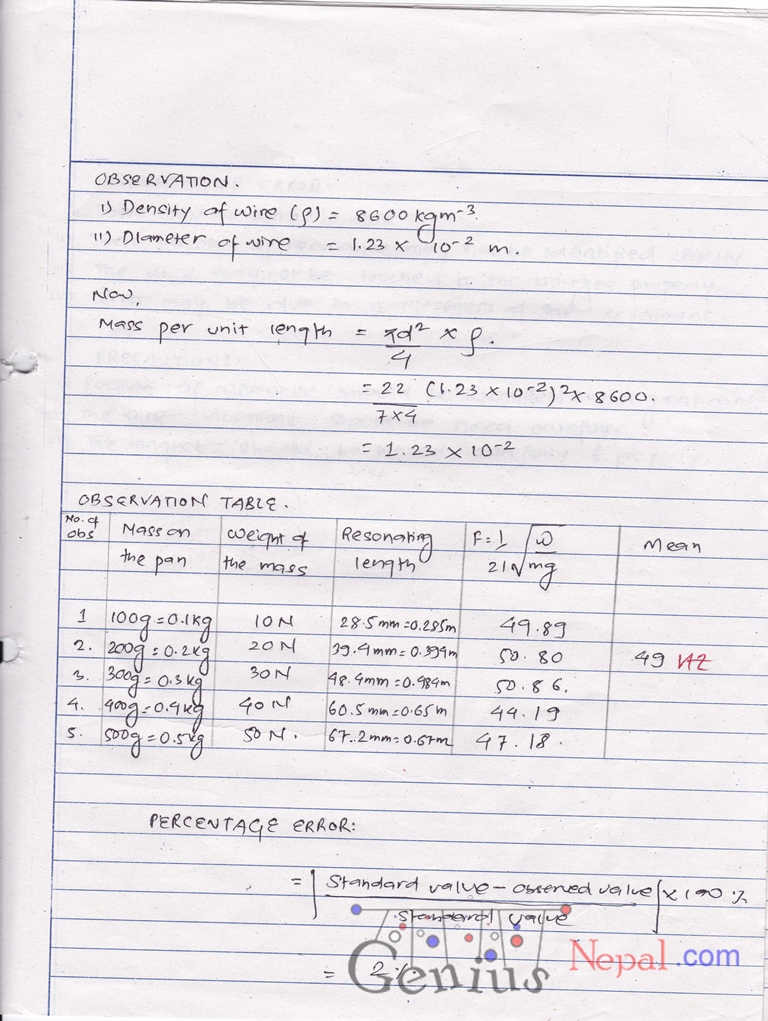 OBSERVATION.
i) Density of wire (ρ) = 8600 kgm⁻³.
ii) Diameter of wire = 1.23 × 10⁻² m.
Now,
Mass per unit length = πd²/4 × ρ.
= 22/7×4 (1.23 × 10⁻²)² × 8600.
= 1.23 × 10⁻²
OBSERVATION TABLE.
No. of obs | Mass on the pan | Weight of the mass | Resonating length | F = 1/2l √w/mg | Mean
1 | 100g = 0.1kg | 10 N | 28.5 mm = 0.285m | 49.89
2. | 200g = 0.2kg | 20 N | 39.4 mm = 0.394m | 50.80 | 49 HZ
3. | 300g = 0.3kg | 30N | 48.4 mm = 0.484m | 50.86.
4. | 400g = 0.4kg | 40 N | 60.5 mm = 0.65m | 44.19
5. | 500g = 0.5kg | 50 N. | 67.2 mm = 0.67m | 47.18.
PERCENTAGE ERROR:
= | Standard value – observed value / standard value | × 100 %
= 2%
Genius Nepal.com